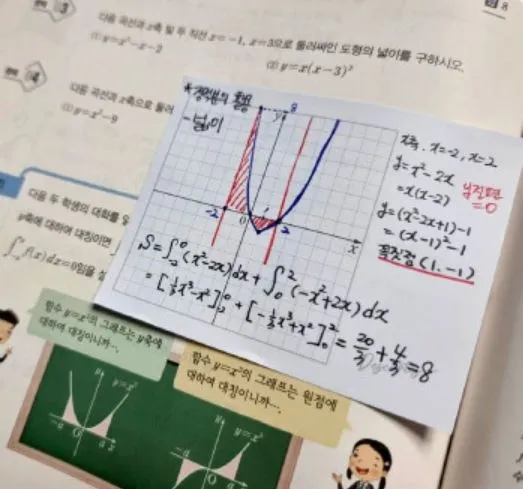 8
3
다음 곡선과 x축 및 두 직선 x=-1, x=3으로 둘러싸인 도형의 넓이를 구하시오.
(1) y=x²-x-2
(2) y=x(x-3)²
4
다음 곡선과 x축으로 둘러
(1) y=x²-9
*정적분의 활용
-넓이
8
y
-2
0
2
x
x축, x=-2, x=2
y=x²-2x
=x(x-2)
y=(x²-2x+1)-1
=(x-1)²-1
꼭짓점(1,-1)
=0
S=∫₋₂⁰(x²-2x)dx+∫₀²(-x²+2x)dx
=[⅓x³-x²]₋₂⁰+[-⅓x³+x²]₀²=20/3+4/3=8
다음 두 학생의 대화를 읽
y축에 대하여 대칭이면
∫f(x)dx=0임을 설
함수 y=x²의 그래프는 y축에
대하여 대칭이니까….
함수 y=x³의 그래프는 원점에
대하여 대칭이니까….
y
y=x²
-a
O
a
x
y
y=x³
-a
O
a
x